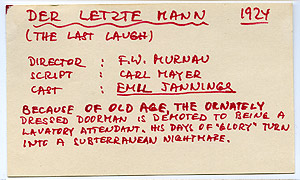 DER LETZTE MANN 1924
(THE LAST LAUGH)
DIRECTOR : F.W. MURNAU
SCRIPT : CARL MAYER
CAST : EMIL JANNINGS
BECAUSE OF OLD AGE, THE ORNATELY
DRESSED DOORMAN IS DEMOTED TO BEING A
LAVATORY ATTENDANT. HIS DAYS OF "GLORY" TURN
INTO A SUBTERRANEAN NIGHTMARE.